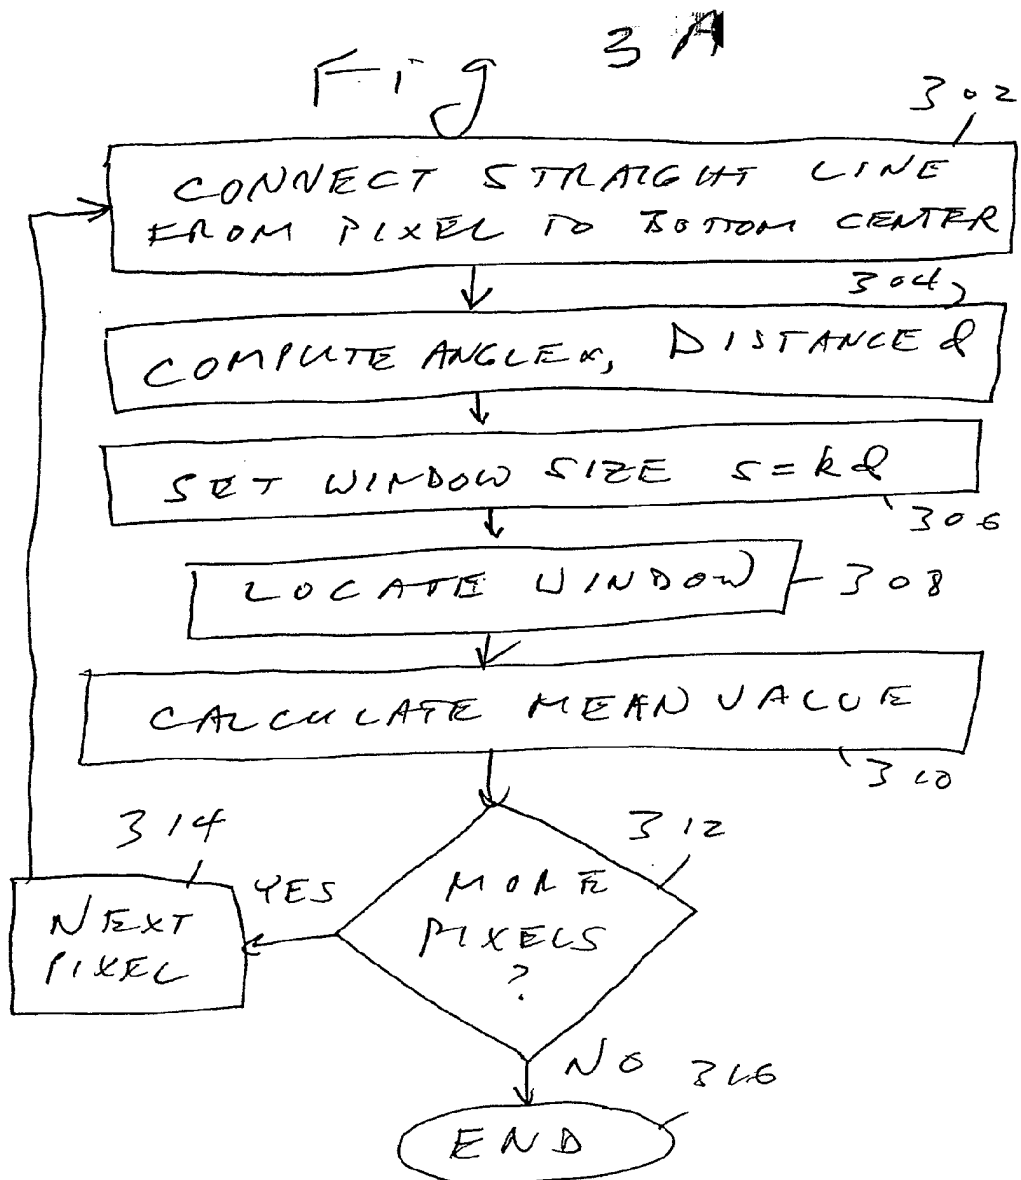 Fig 3A
302
CONNECT STRAIGHT LINE
FROM PIXEL TO BOTTOM CENTER
304
COMPUTE ANGLE α, DISTANCE d
SET WINDOW SIZE s=kd
306
LOCATE WINDOW
308
CALCULATE MEAN VALUE
310
314
312
YES
MORE
PIXELS
?
NEXT
PIXEL
NO
316
END